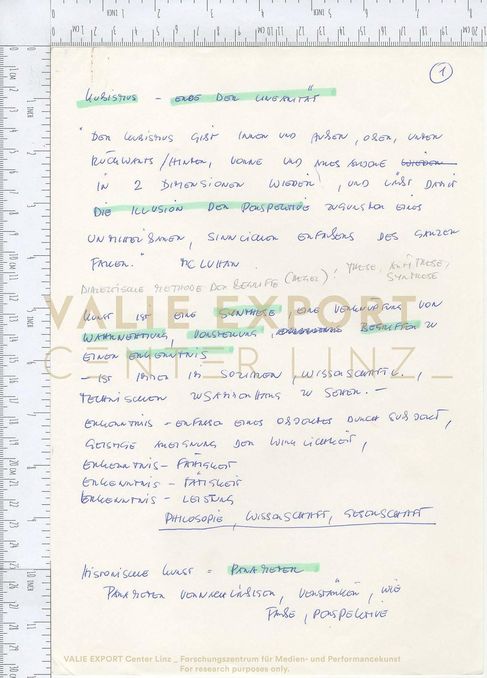 1
KUBISMUS – ENDE DER LINEARITÄT
"DER KUBISMUS GIBT INNEN UND AUSSEN, OBEN, UNTEN
RÜCKWÄRTS/HINTEN, VORNE UND ALLES ANDERE
IN 2 DIMENSIONEN WIEDER, UND LÄSST DAMIT
DIE ILLUSION DER PERSPEKTIVE ZUGUNSTEN EINES
UNMITTELBAREN, SINNLICHEN ERFASSENS DES GANZEN
FALLEN." MC LUHAN
DIALEKTISCHE METHODE DER BEGRIFFE (HEGEL): THESE, ANTITHESE,
SYNTHESE
KUNST IST EINE SYNTHESE, EINE VERKNÜPFUNG VON
WAHRNEHMUNG, VORSTELLUNG, BEGRIFFEN ZU
EINER ERKENNTNIS
– IST IMMER IM SOZIALEN, WISSENSCHAFTL.,
TECHNISCHEN ZUSAMMENHANG ZU SEHEN. –
ERKENNTNIS – ERFASSEN EINES OBJEKTES DURCH SUBJEKT,
GEISTIGE ANEIGNUNG DER WIRKLICHKEIT,
ERKENNTNIS – FÄHIGKEIT
ERKENNTNIS – TÄTIGKEIT
ERKENNTNIS – LEISTUNG
PHILOSOPIE, WISSENSCHAFT, GESELLSCHAFT
HISTORISCHE KUNST = PARAMETER
PARAMETER VERNACHLÄSSIGEN, VERSTÄRKEN, WIE
FARBE, PERSPEKTIVE
VALIE EXPORT
CENTER LINZ_
VALIE EXPORT Center Linz _ Forschungszentrum für Medien- und Performancekunst
For research purposes only.